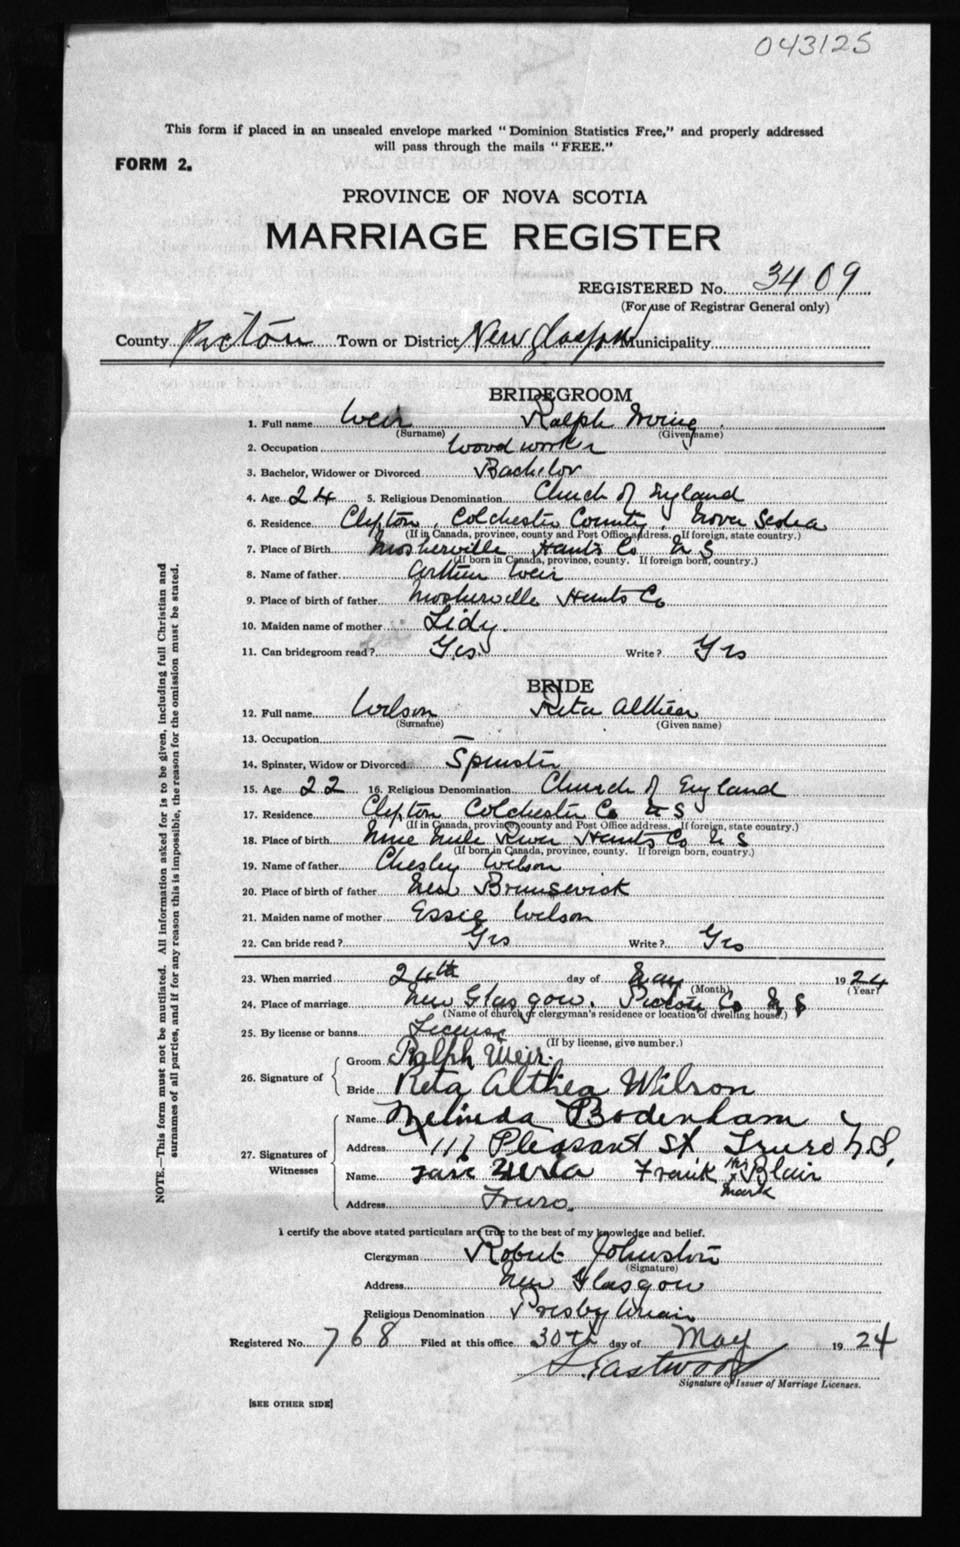 043125
This form if placed in an unsealed envelope marked "Dominion Statistics Free," and properly addressed
will pass through the mails "FREE."
FORM 2.
PROVINCE OF NOVA SCOTIA
MARRIAGE REGISTER
REGISTERED No. 3409
(For use of Registrar General only)
County Pictou Town or District New Glasgow Municipality
BRIDEGROOM
1. Full name Weir Ralph Irving
(Surname) (Given name)
2. Occupation Wood worker
3. Bachelor, Widower or Divorced Bachelor
4. Age 24 5. Religious Denomination Church of England
6. Residence Clifton, Colchester County, Nova Scotia
(If in Canada, province, county and Post Office address. If foreign, state country.)
7. Place of Birth Mosherville Hants Co N S
(If born in Canada, province, county. If foreign born, country.)
8. Name of father Arthur Weir
9. Place of birth of father Mosherville Hants Co
10. Maiden name of mother Lidy
11. Can bridegroom read? Yes Write? Yes
BRIDE
12. Full name Wilson Reta Althea
(Surname) (Given name)
13. Occupation —
14. Spinster, Widow or Divorced Spinster
15. Age 22 16. Religious Denomination Church of England
17. Residence Clifton Colchester Co N S
(If in Canada, province, county and Post Office address. If foreign, state country.)
18. Place of birth Nine Mile River Hants Co N S
(If born in Canada, province, county. If foreign born, country.)
19. Name of father Chesley Wilson
20. Place of birth of father New Brunswick
21. Maiden name of mother Essie Wilson
22. Can bride read? Yes Write? Yes
23. When married 24th day of May 1924
(Month) (Year)
24. Place of marriage New Glasgow, Pictou Co N S
(Name of church or clergyman's residence or location of dwelling house.)
25. By license or banns License
(If by license, give number.)
26. Signature of Groom Ralph Weir.
Bride Reta Althea Wilson
27. Signatures of Witnesses Name Melinda Bodenham
Address 111 Pleasant St Truro N.S.
Name Frank his x mark Blair
Address Truro.
I certify the above stated particulars are true to the best of my knowledge and belief.
Clergyman Robert Johnston
(Signature)
Address New Glasgow
Religious Denomination Presbyterian
Registered No. 768 Filed at this office 30th day of May 1924
Eastwood
Signature of Issuer of Marriage Licenses.
[SEE OTHER SIDE]
NOTE.—This form must not be mutilated. All information asked for is to be given, including full Christian and
surnames of all parties, and if for any reason this is impossible, the reason for the omission must be stated.